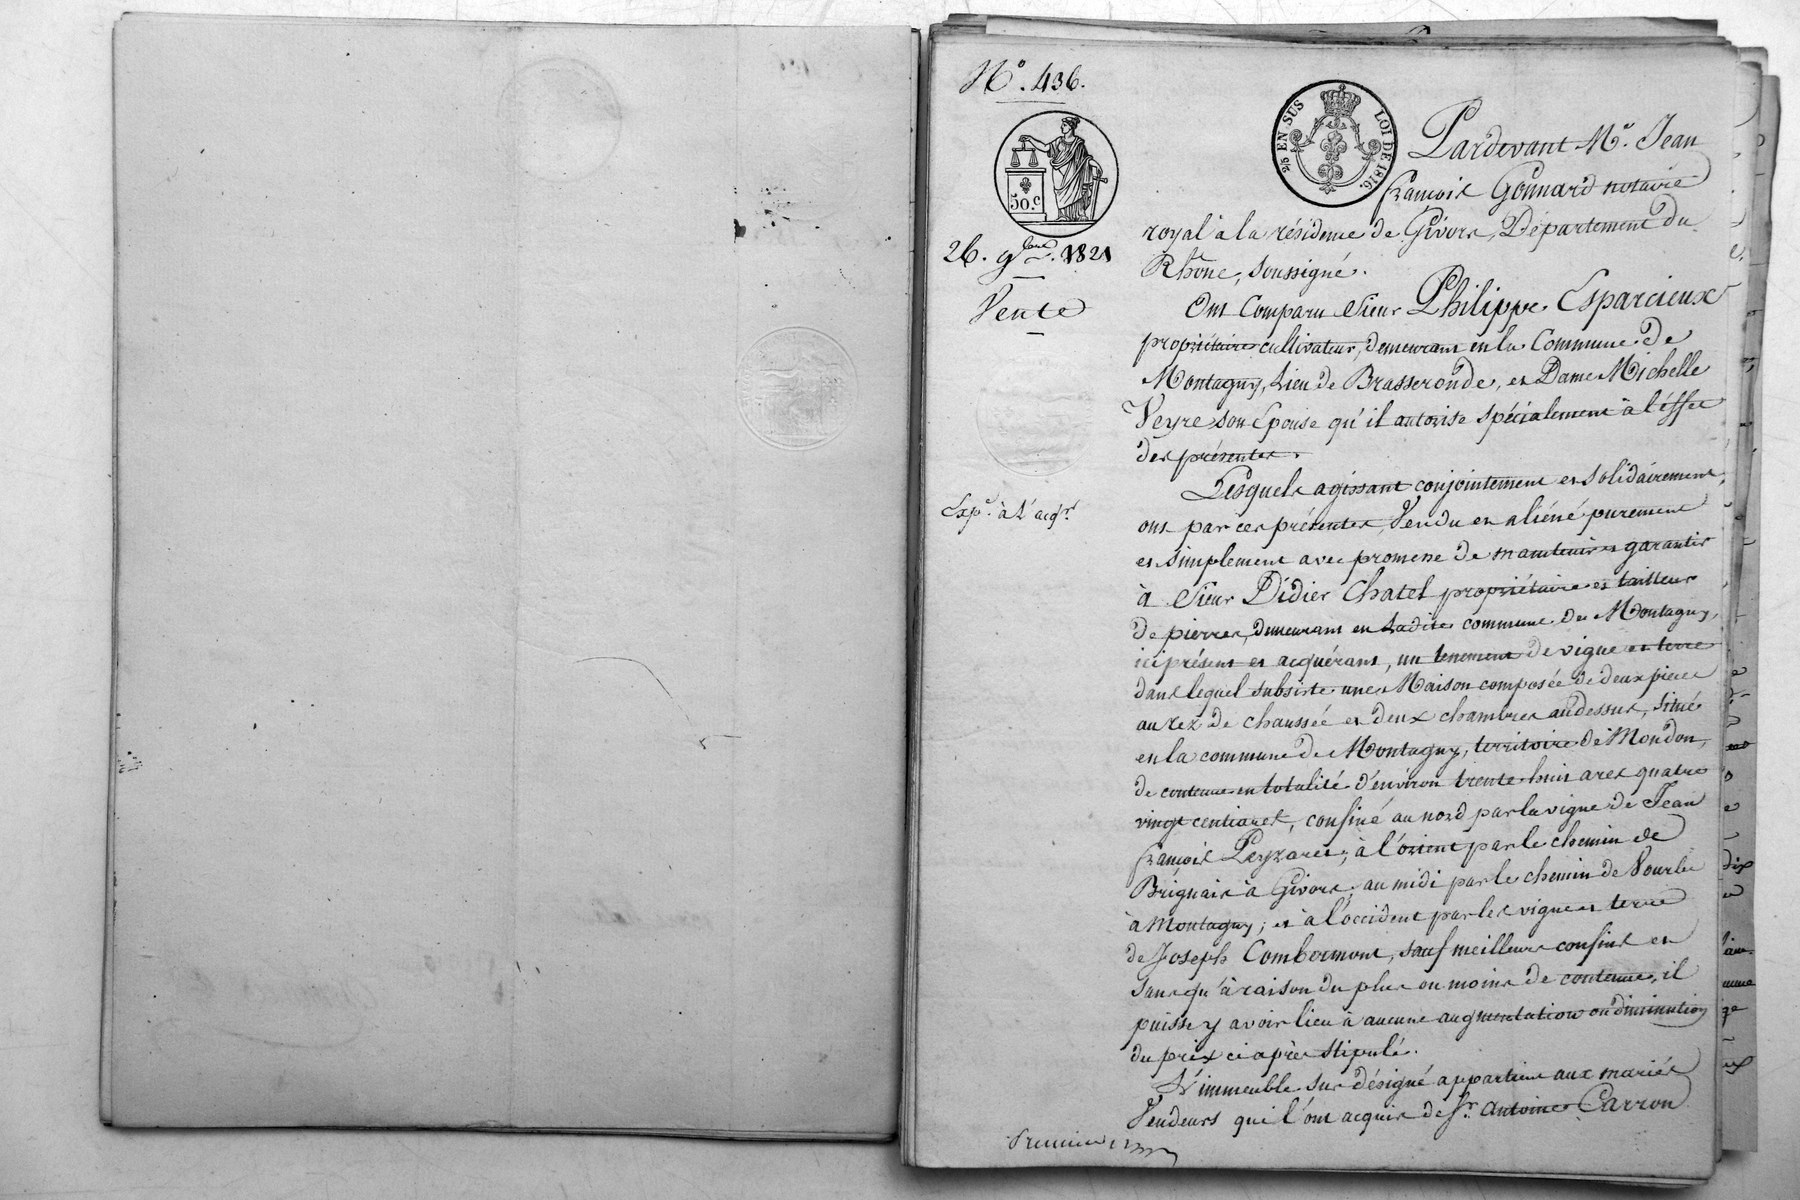 N°. 436.
50.c
2/5 EN SUS LOI DE 1816.
26. 9bre. 1821
Vente
Expon. à l'acqr.
Pardevant Me. Jean
françois Gonnard notaire
royal à la résidence de Givors, Département du
Rhône, soussigné.
Ont Comparu Sieur Philippe Esparcieux
propriétaire cultivateur, demeurant en la Commune de
Montagny, Lieu de Brasseronde, et Dame Michelle
Veyre son Epouse qu'il autorise spécialement à l'effet
des présentes.
Lesquels agissant conjointement et solidairement,
ont par ces présentes, Vendu et aliéné purement
et simplement avec promesse de maintenir et garantir
à Sieur Didier Chatel propriétaire et tailleur
de pierres, demeurant en Ladite commune de Montagny,
ici présent et acquérant, un tenement de vigne et terre
dans lequel subsiste une Maison composée de deux pieces
au rez de chaussée et deux chambres au dessus, situé
en la commune de Montagny, territoire de Mondon,
de contenue en totalité d'environ trente huit ares quatre
vingt centiares, confiné au nord par la vigne de Jean
françois Peyzaret; à l'orient par le chemin de
Brignais à Givors; au midi par le chemin de Vourles
à Montagny; et à l'occident par les vigne et terre
de Joseph Combermont, sauf meilleurs confins et
sans qu'à raison du plus ou moins de contenue, il
puisse y avoir lieu à aucune augmentation ou diminution
du prix ci après stipulé.
L'immeuble sus désigné appartient aux mariés
Vendeurs qui l'ont acquis de Sr. Antoine Carron